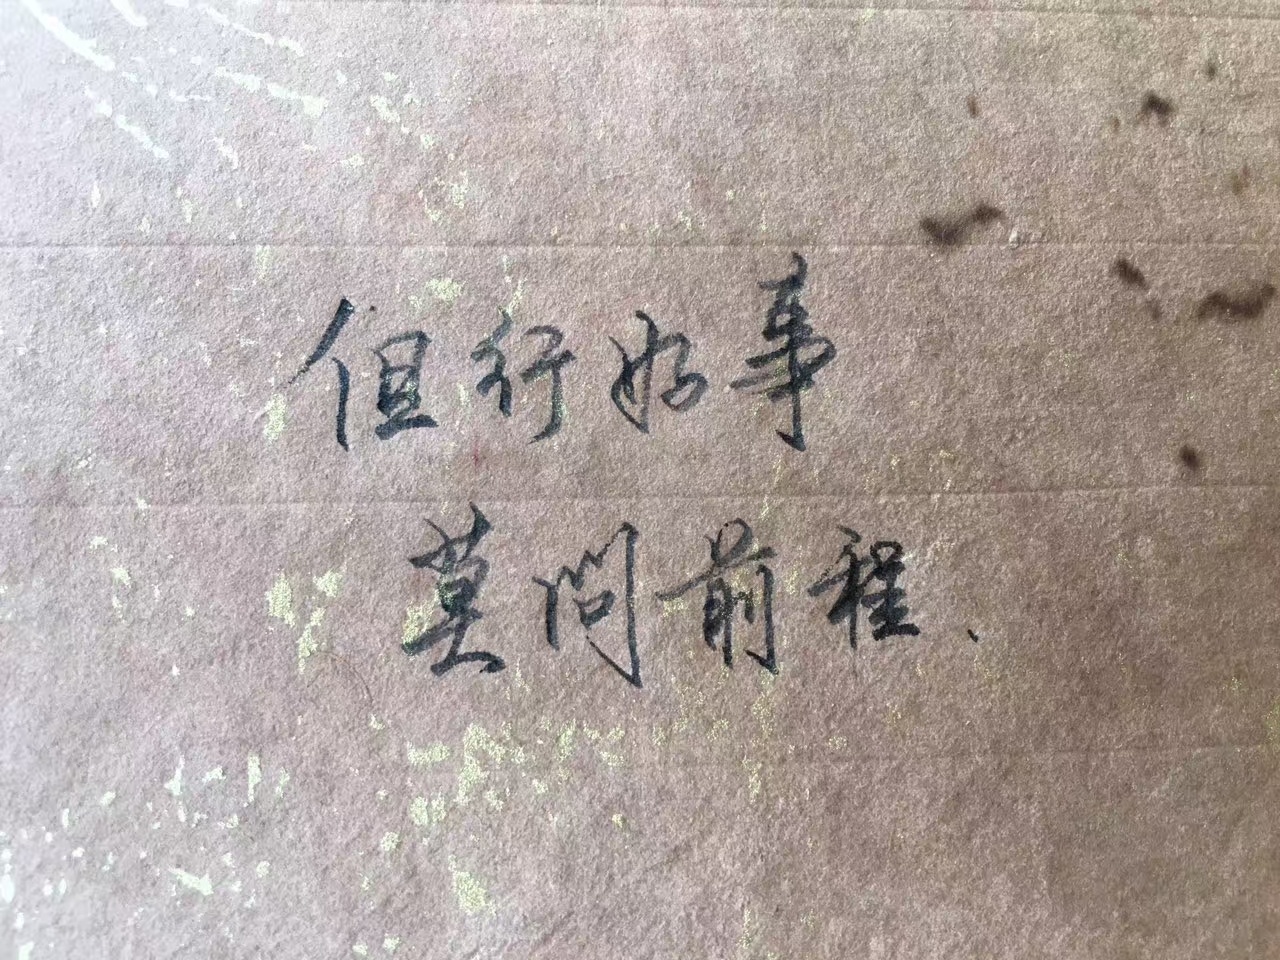 但行好事
莫问前程、